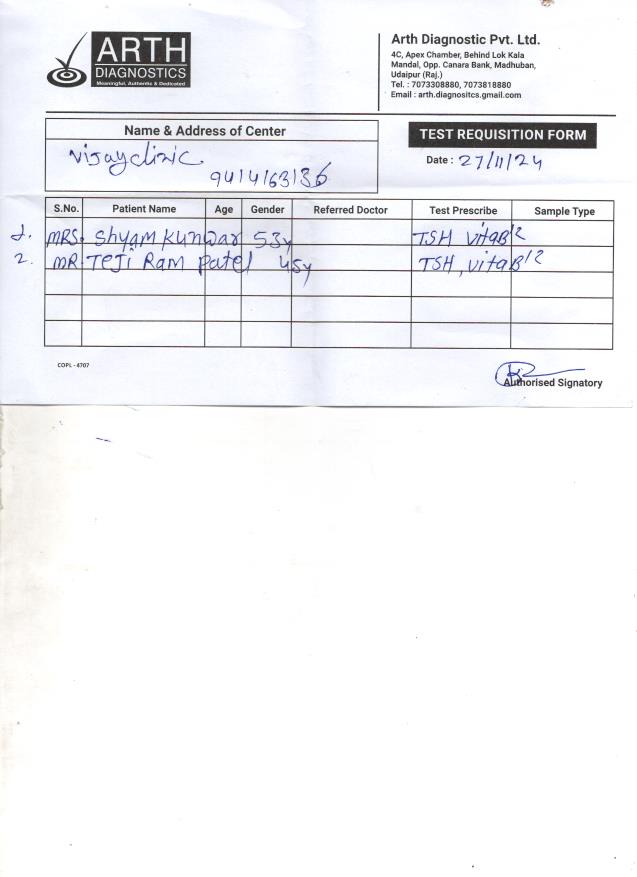 ARTH
DIAGNOSTICS
Meaningful, Authentic & Dedicated
Arth Diagnostic Pvt. Ltd.
4C, Apex Chamber, Behind Lok Kala
Mandal, Opp. Canara Bank, Madhuban,
Udaipur (Raj.)
Tel. : 7073308880, 7073818880
Email : arth.diagnositcs.gmail.com
Name & Address of Center
Vijay clinic
9414163136
TEST REQUISITION FORM
Date : 27/11/24
S.No. Patient Name Age Gender Referred Doctor Test Prescribe Sample Type
1. MRS. Shyam Kunwar 53y TSH VitaB12
2. MR. Teji Ram Patel 45y TSH, VitaB12
COPL - 4707
Authorised Signatory